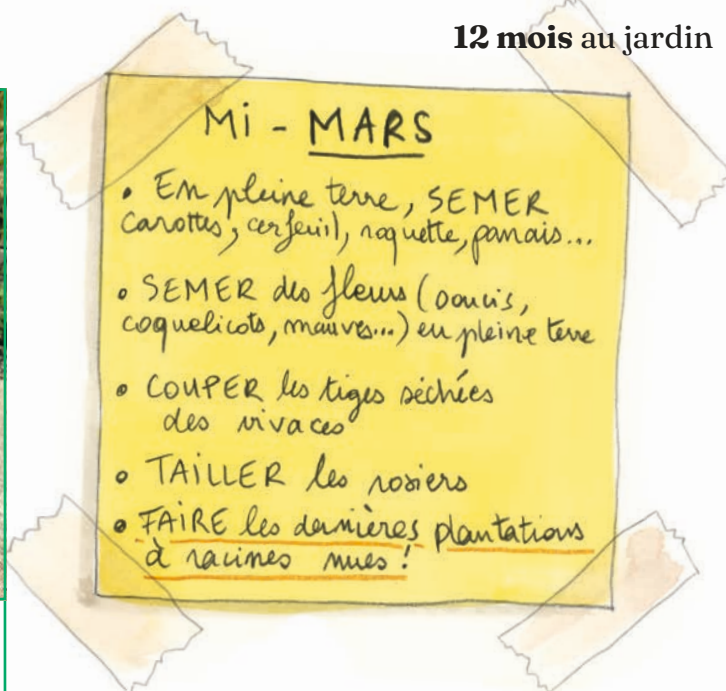 12 mois au jardin
Mi - MARS
• En pleine terre, SEMER
carottes, cerfeuil, roquette, panais...
• SEMER des fleurs (soucis,
coquelicots, mauves...) en pleine terre
• COUPER les tiges séchées
des vivaces
• TAILLER les rosiers
• FAIRE les dernières plantations
à racines nues !